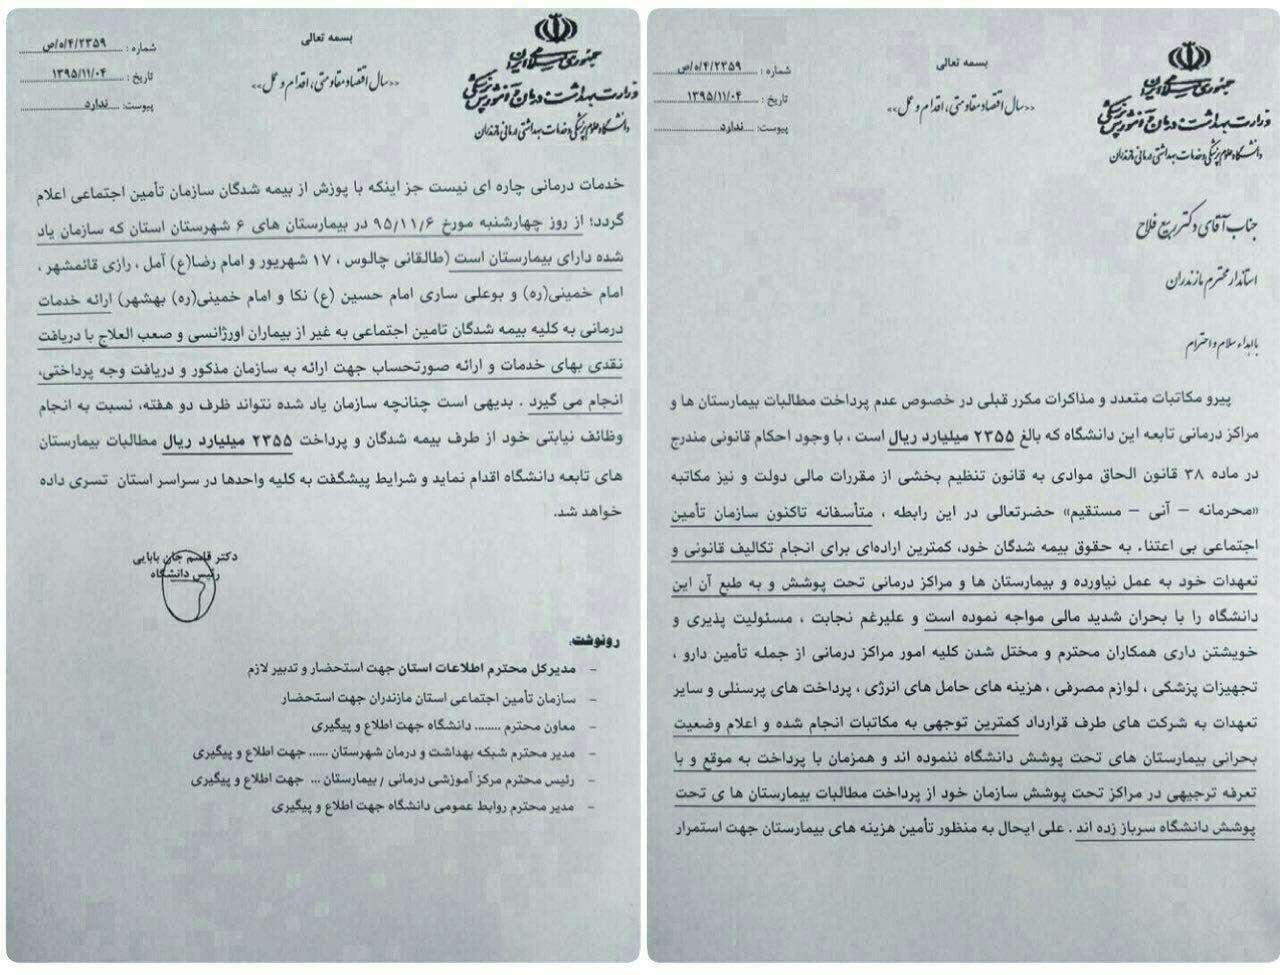 بسمه تعالی
جمهوری اسلامی ایران
وزارت بهداشت درمان و آموزش پزشکی
دانشگاه علوم پزشکی و خدمات بهداشتی درمانی مازندران
شماره : ۲۳۵۹/۴/ه/ص
تاریخ : ۱۳۹۵/۱۱/۰۴
پیوست: ندارد
««سال اقتصاد مقاومتی، اقدام و عمل»»
جناب آقای دکتر ربیع فلاح
استاندار محترم مازندران
با اهداء سلام و احترام
پیرو مکاتبات متعدد و مذاکرات مکرر قبلی در خصوص عدم پرداخت مطالبات بیمارستان ها و
مراکز درمانی تابعه این دانشگاه که بالغ ۲۳۵۵ میلیارد ریال است ، با وجود احکام قانونی مندرج
در ماده ۳۸ قانون الحاق موادی به قانون تنظیم بخشی از مقررات مالی دولت و نیز مکاتبه
«محرمانه – آنی – مستقیم» حضرتعالی در این رابطه ، متأسفانه تاکنون سازمان تأمین
اجتماعی بی اعتناء به حقوق بیمه شدگان خود، کمترین اراده‌ای برای انجام تکالیف قانونی و
تعهدات خود به عمل نیاورده و بیمارستان ها و مراکز درمانی تحت پوشش و به طبع آن این
دانشگاه را با بحران شدید مالی مواجه نموده است و علیرغم نجابت ، مسئولیت پذیری و
خویشتن داری همکاران محترم و مختل شدن کلیه امور مراکز درمانی از جمله تأمین دارو ،
تجهیزات پزشکی ، لوازم مصرفی ، هزینه های حامل های انرژی ، پرداخت های پرسنلی و سایر
تعهدات به شرکت های طرف قرارداد کمترین توجهی به مکاتبات انجام شده و اعلام وضعیت
بحرانی بیمارستان های تحت پوشش دانشگاه ننموده اند و همزمان با پرداخت به موقع و با
تعرفه ترجیهی در مراکز تحت پوشش سازمان خود از پرداخت مطالبات بیمارستان ها ی تحت
پوشش دانشگاه سرباز زده اند . علی ایحال به منظور تأمین هزینه های بیمارستان جهت استمرار
بسمه تعالی
جمهوری اسلامی ایران
وزارت بهداشت درمان و آموزش پزشکی
دانشگاه علوم پزشکی و خدمات بهداشتی درمانی مازندران
شماره : ۲۳۵۹/۴/ه/ص
تاریخ : ۱۳۹۵/۱۱/۰۴
پیوست: ندارد
««سال اقتصاد مقاومتی، اقدام و عمل»»
خدمات درمانی چاره ای نیست جز اینکه با پوزش از بیمه شدگان سازمان تأمین اجتماعی اعلام
گردد؛ از روز چهارشنبه مورخ ۹۵/۱۱/۶ در بیمارستان های ۶ شهرستان استان که سازمان یاد
شده دارای بیمارستان است (طالقانی چالوس ، ۱۷ شهریور و امام رضا(ع) آمل ، رازی قائمشهر ،
امام خمینی(ره) و بوعلی ساری امام حسین (ع) نکا و امام خمینی(ره) بهشهر) ارائه خدمات
درمانی به کلیه بیمه شدگان تامین اجتماعی به غیر از بیماران اورژانسی و صعب العلاج با دریافت
نقدی بهای خدمات و ارائه صورتحساب جهت ارائه به سازمان مذکور و دریافت وجه پرداختی،
انجام می گیرد . بدیهی است چنانچه سازمان یاد شده نتواند ظرف دو هفته، نسبت به انجام
وظائف نیابتی خود از طرف بیمه شدگان و پرداخت ۲۳۵۵ میلیارد ریال مطالبات بیمارستان
های تابعه دانشگاه اقدام نماید و شرایط پیشگفت به کلیه واحدها در سراسر استان تسری داده
خواهد شد.
دکتر قاسم جان بابایی
رئیس دانشگاه
رونوشت:
- مدیرکل محترم اطلاعات استان جهت استحضار و تدبیر لازم
- سازمان تأمین اجتماعی استان مازندران جهت استحضار
- معاون محترم ........ دانشگاه جهت اطلاع و پیگیری
- مدیر محترم شبکه بهداشت و درمان شهرستان ...... جهت اطلاع و پیگیری
- رئیس محترم مرکز آموزشی درمانی / بیمارستان ... جهت اطلاع و پیگیری
- مدیر محترم روابط عمومی دانشگاه جهت اطلاع و پیگیری